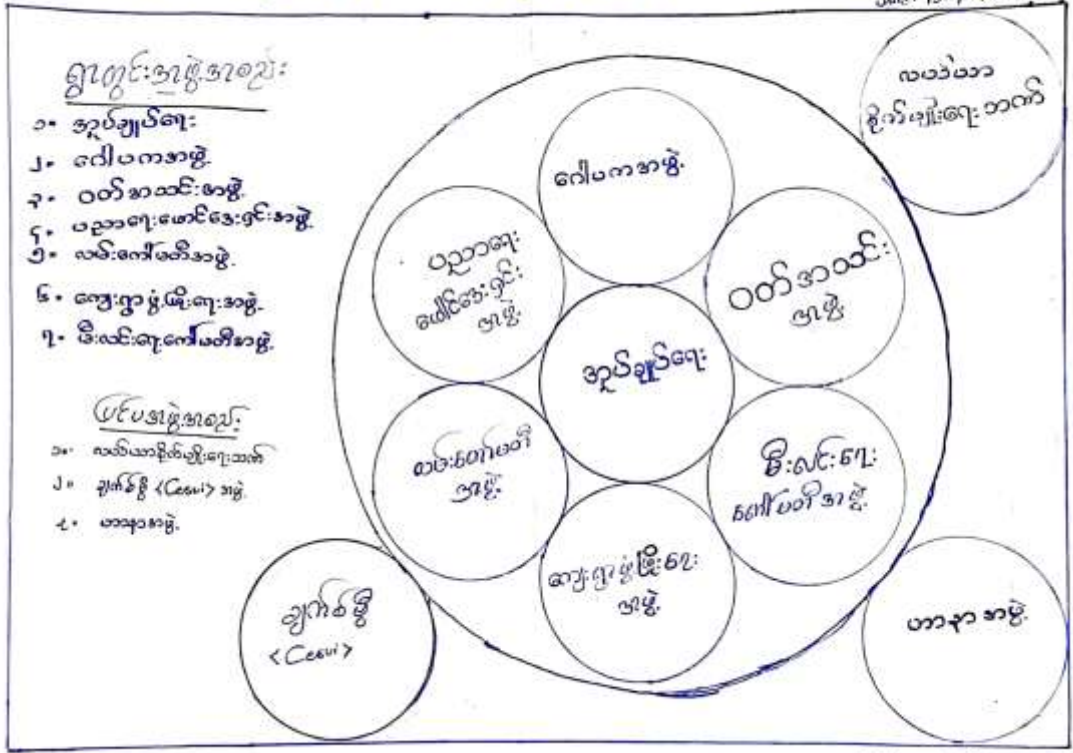 ရွာတွင်းအဖွဲ့အစည်း
၁။ အုပ်ချုပ်ရေး
၂။ ဂေါပကအဖွဲ့
၃။ ဝတ်အသင်းအဖွဲ့
၄။ ပညာရေးဖောင်ဒေးရှင်းအဖွဲ့
၅။ လမ်းကော်မတီအဖွဲ့
၆။ ကျေးရွာဖွံ့ဖြိုးရေးအဖွဲ့
၇။ မီးလင်းရေးကော်မတီအဖွဲ့
ပြင်ပအဖွဲ့အစည်း
၁။ လယ်ယာစိုက်ပျိုးရေးဘဏ်
၂။ ချက်စ်ဗွီ <Cesvi> အဖွဲ့
၃။ ဟာနာအဖွဲ့
ဂေါပကအဖွဲ့
ပညာရေး
ဖေါင်ဒေးရှင်း
အဖွဲ့
ဝတ်အသင်း
အဖွဲ့
အုပ်ချုပ်ရေး
လမ်းကော်မတီ
အဖွဲ့
မီးလင်းရေး
ကော်မတီအဖွဲ့
ကျေးရွာဖွံ့ဖြိုးရေး
အဖွဲ့
လယ်ယာ
စိုက်ပျိုးရေးဘဏ်
ချက်စ်ဗွီ
<Cesvi>
ဟာနာအဖွဲ့